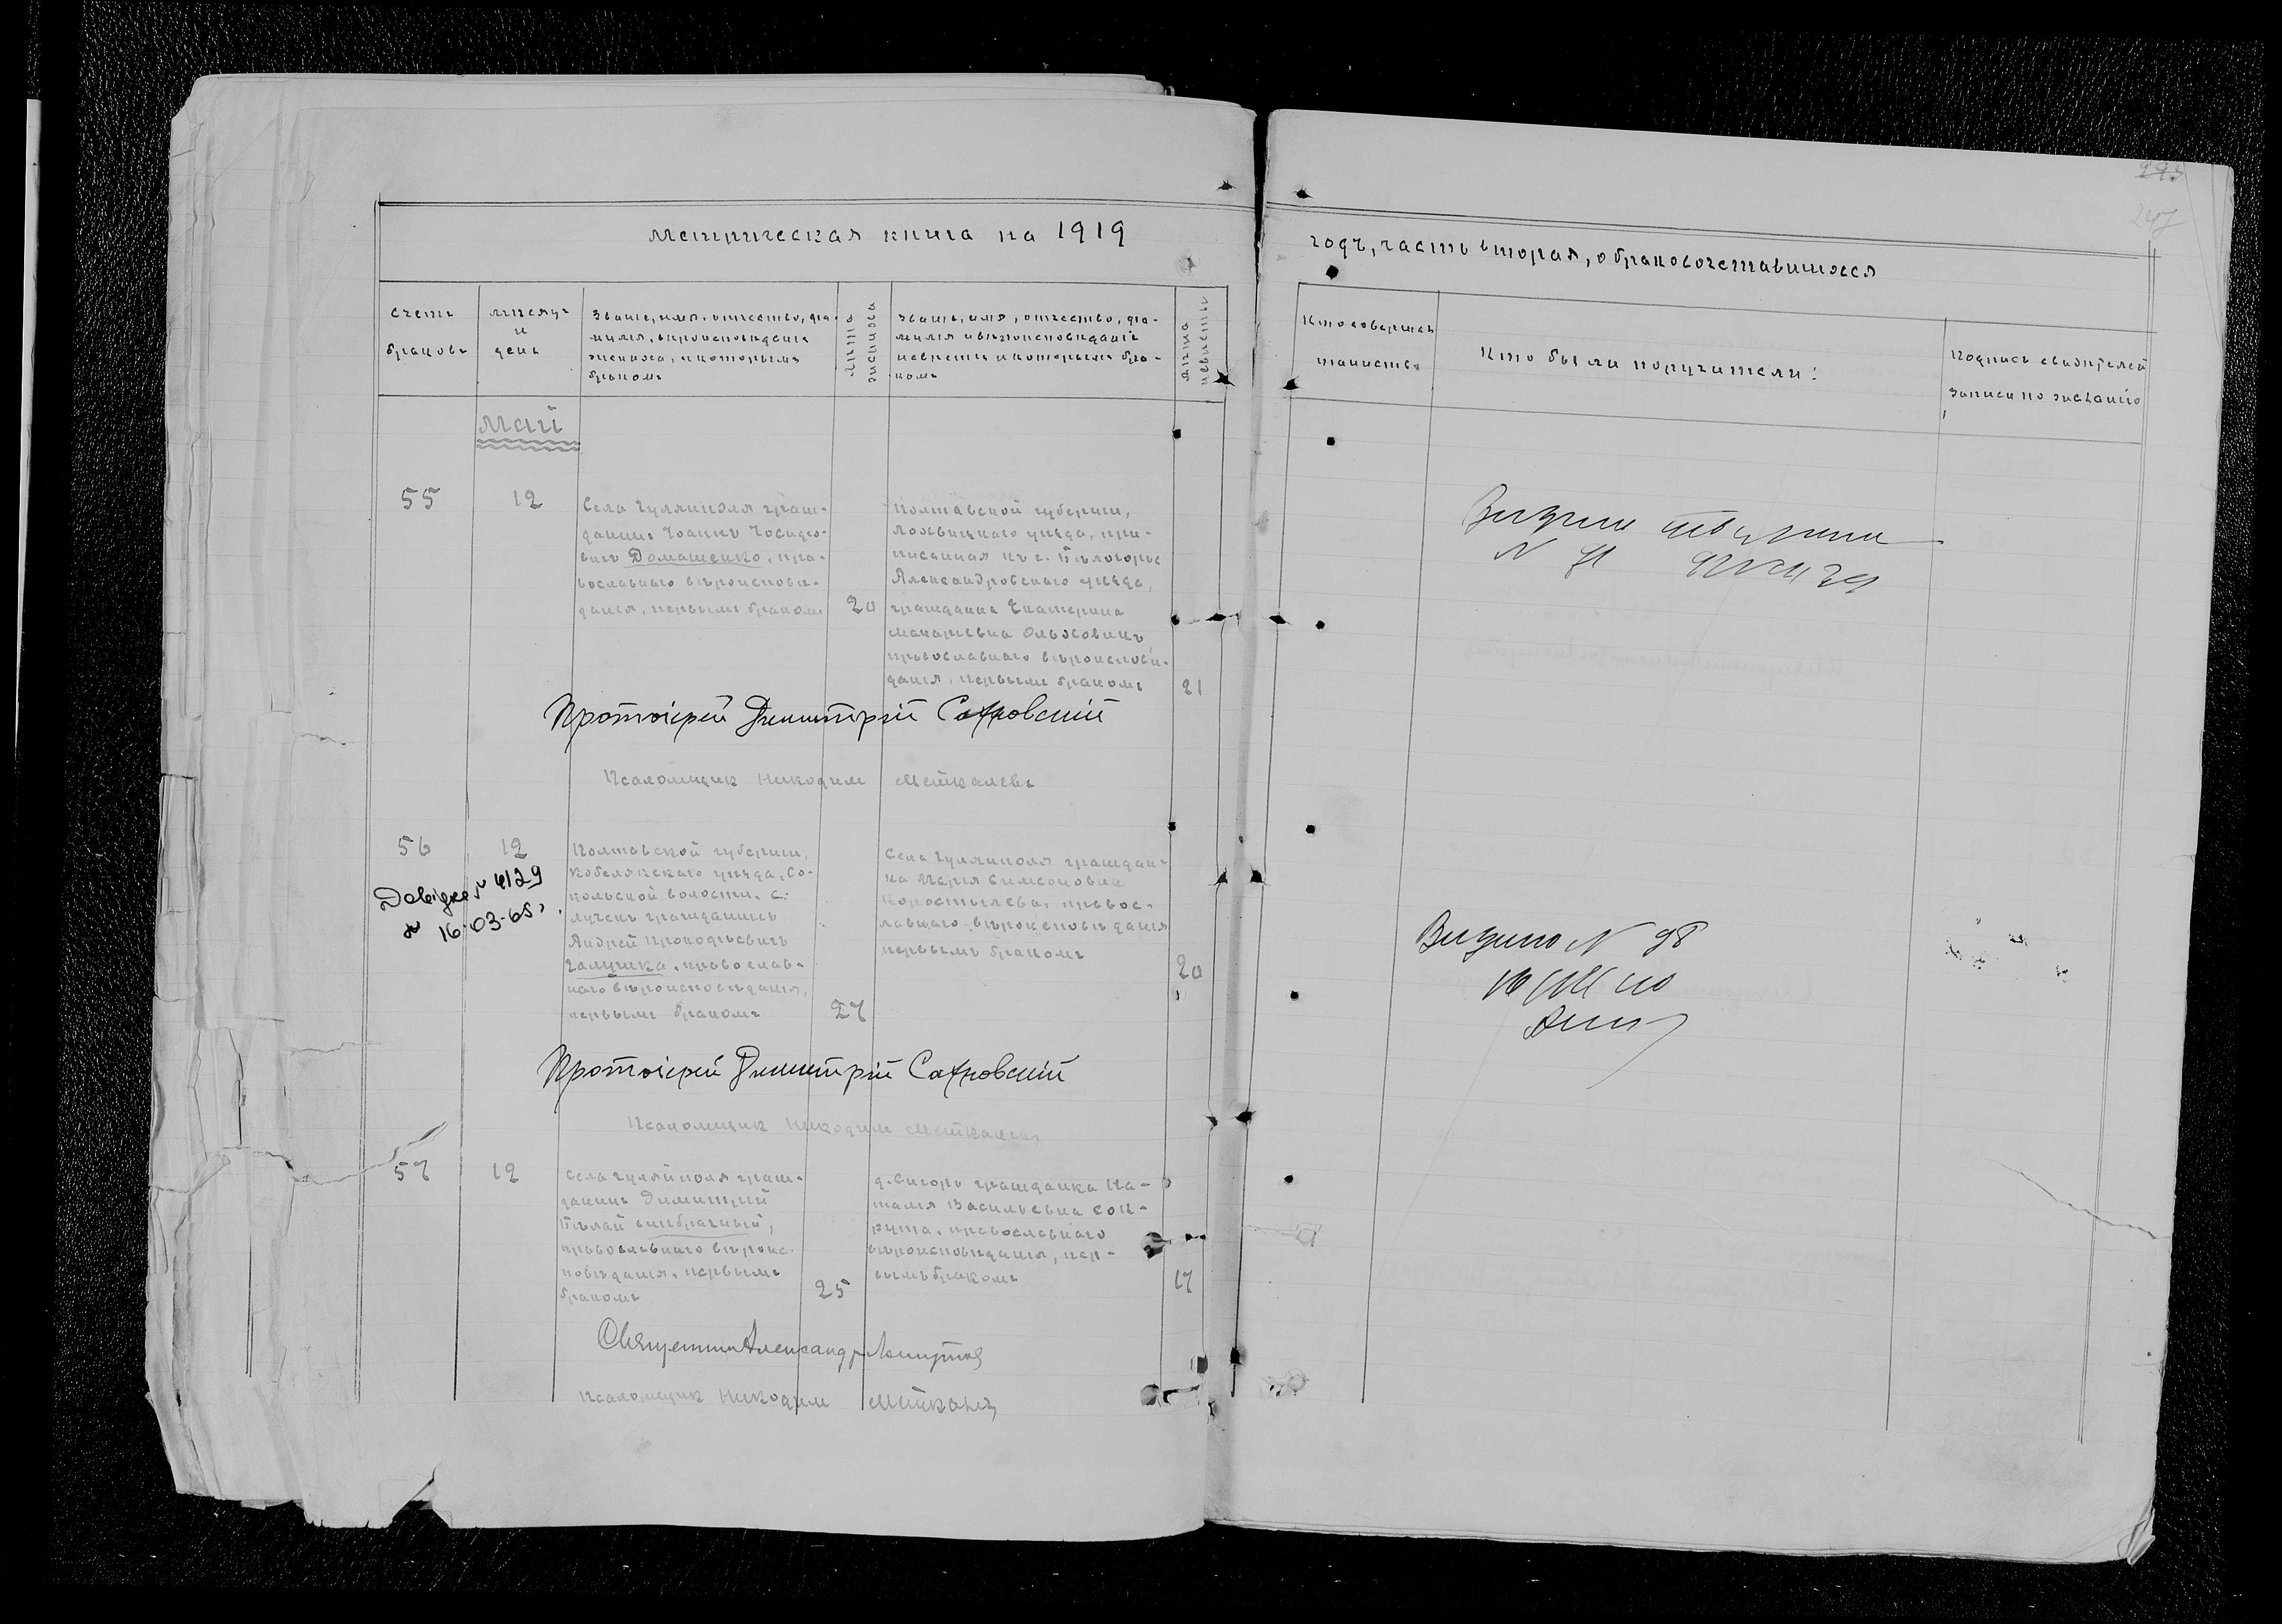 Метрическая книга на 1919
годъ, часть вторая, о бракосочетавшихся
Счетъ
браковъ
Мѣсяцъ
и
день
Званіе, имя, отчество, фа-
милія, вѣроисповѣданіе
жениха, и которымъ
бракомъ
Лѣта
жениха
Званіе, имя, отчество, фа-
милія и вѣроисповѣданіе
невѣсты и которымъ бра-
комъ
Лѣта
невѣсты
Кто совершал
таинство
Кто были поручители:
Подпись свидѣтелей
записи по желанію
Май
55
12
Села Гуляйполя граж-
данинъ Іоаннъ Іосифо-
вичъ Домашенко, пра-
вославнаго вѣроисповѣ-
данія, первымъ бракомъ
20
Полтавской губерніи,
Лохвицкаго уѣзда, при-
писанная къ с. Бѣлогорье
Александровскаго уѣзда,
гражданка Екатерина
Макарьевна Ольховикъ
православнаго вѣроисповѣ-
данія, первымъ бракомъ
21
Протоіерей Димитрій Сахновскій
Псаломщик Никодим Мейкалевъ
56
12
Довідка № 4129
16-03-65
Полтавской губерніи,
Кобелякскаго уѣзда, Со-
кольской волости, с.
Лучекъ гражданинъ
Андрей Прокофьевичъ
Галушка, православ-
наго вѣроисповѣданія,
первымъ бракомъ
27
Села Гуляйполя граждан-
ка Марія Симеоновна
Коростылева, правос-
лавнаго вѣроисповѣданія
первымъ бракомъ
20
Видано N 98
Протоіерей Димитрій Сахновскій
Псаломщик Никодим Мейкалевъ
57
12
Села Гуляйполя граж-
данинъ Димитрій
Бѣлай внѣбрачный,
православнаго вѣроис-
повѣданія, первымъ
бракомъ
25
гражданка На-
талія Васильевна Сок-
рута, православнаго
вѣроисповѣданія, пер-
вымъ бракомъ
17
Священник Александр
Псаломщик Никодим Мейкалевъ